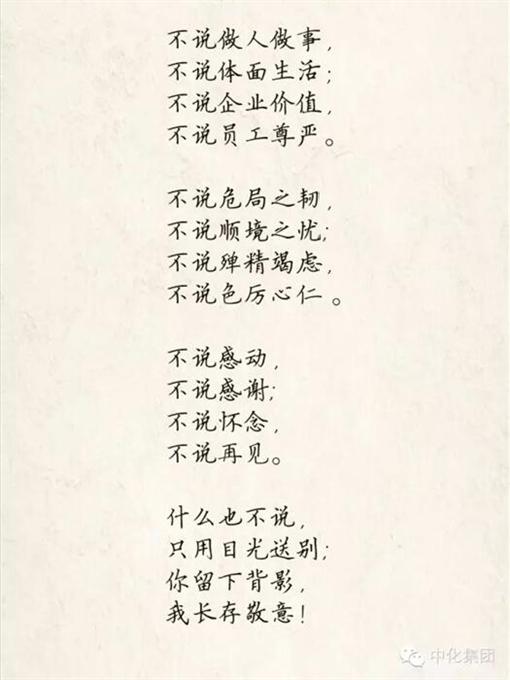 不说做人做事，
不说体面生活；
不说企业价值，
不说员工尊严。
不说危局之韧，
不说顺境之忧；
不说殚精竭虑，
不说色厉心仁。
不说感动，
不说感谢；
不说怀念，
不说再见。
什么也不说，
只用目光送别；
你留下背影，
我长存敬意！
中化集团